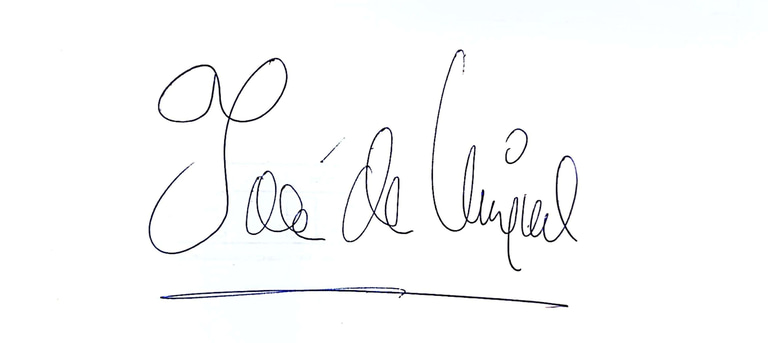 José de Miguel